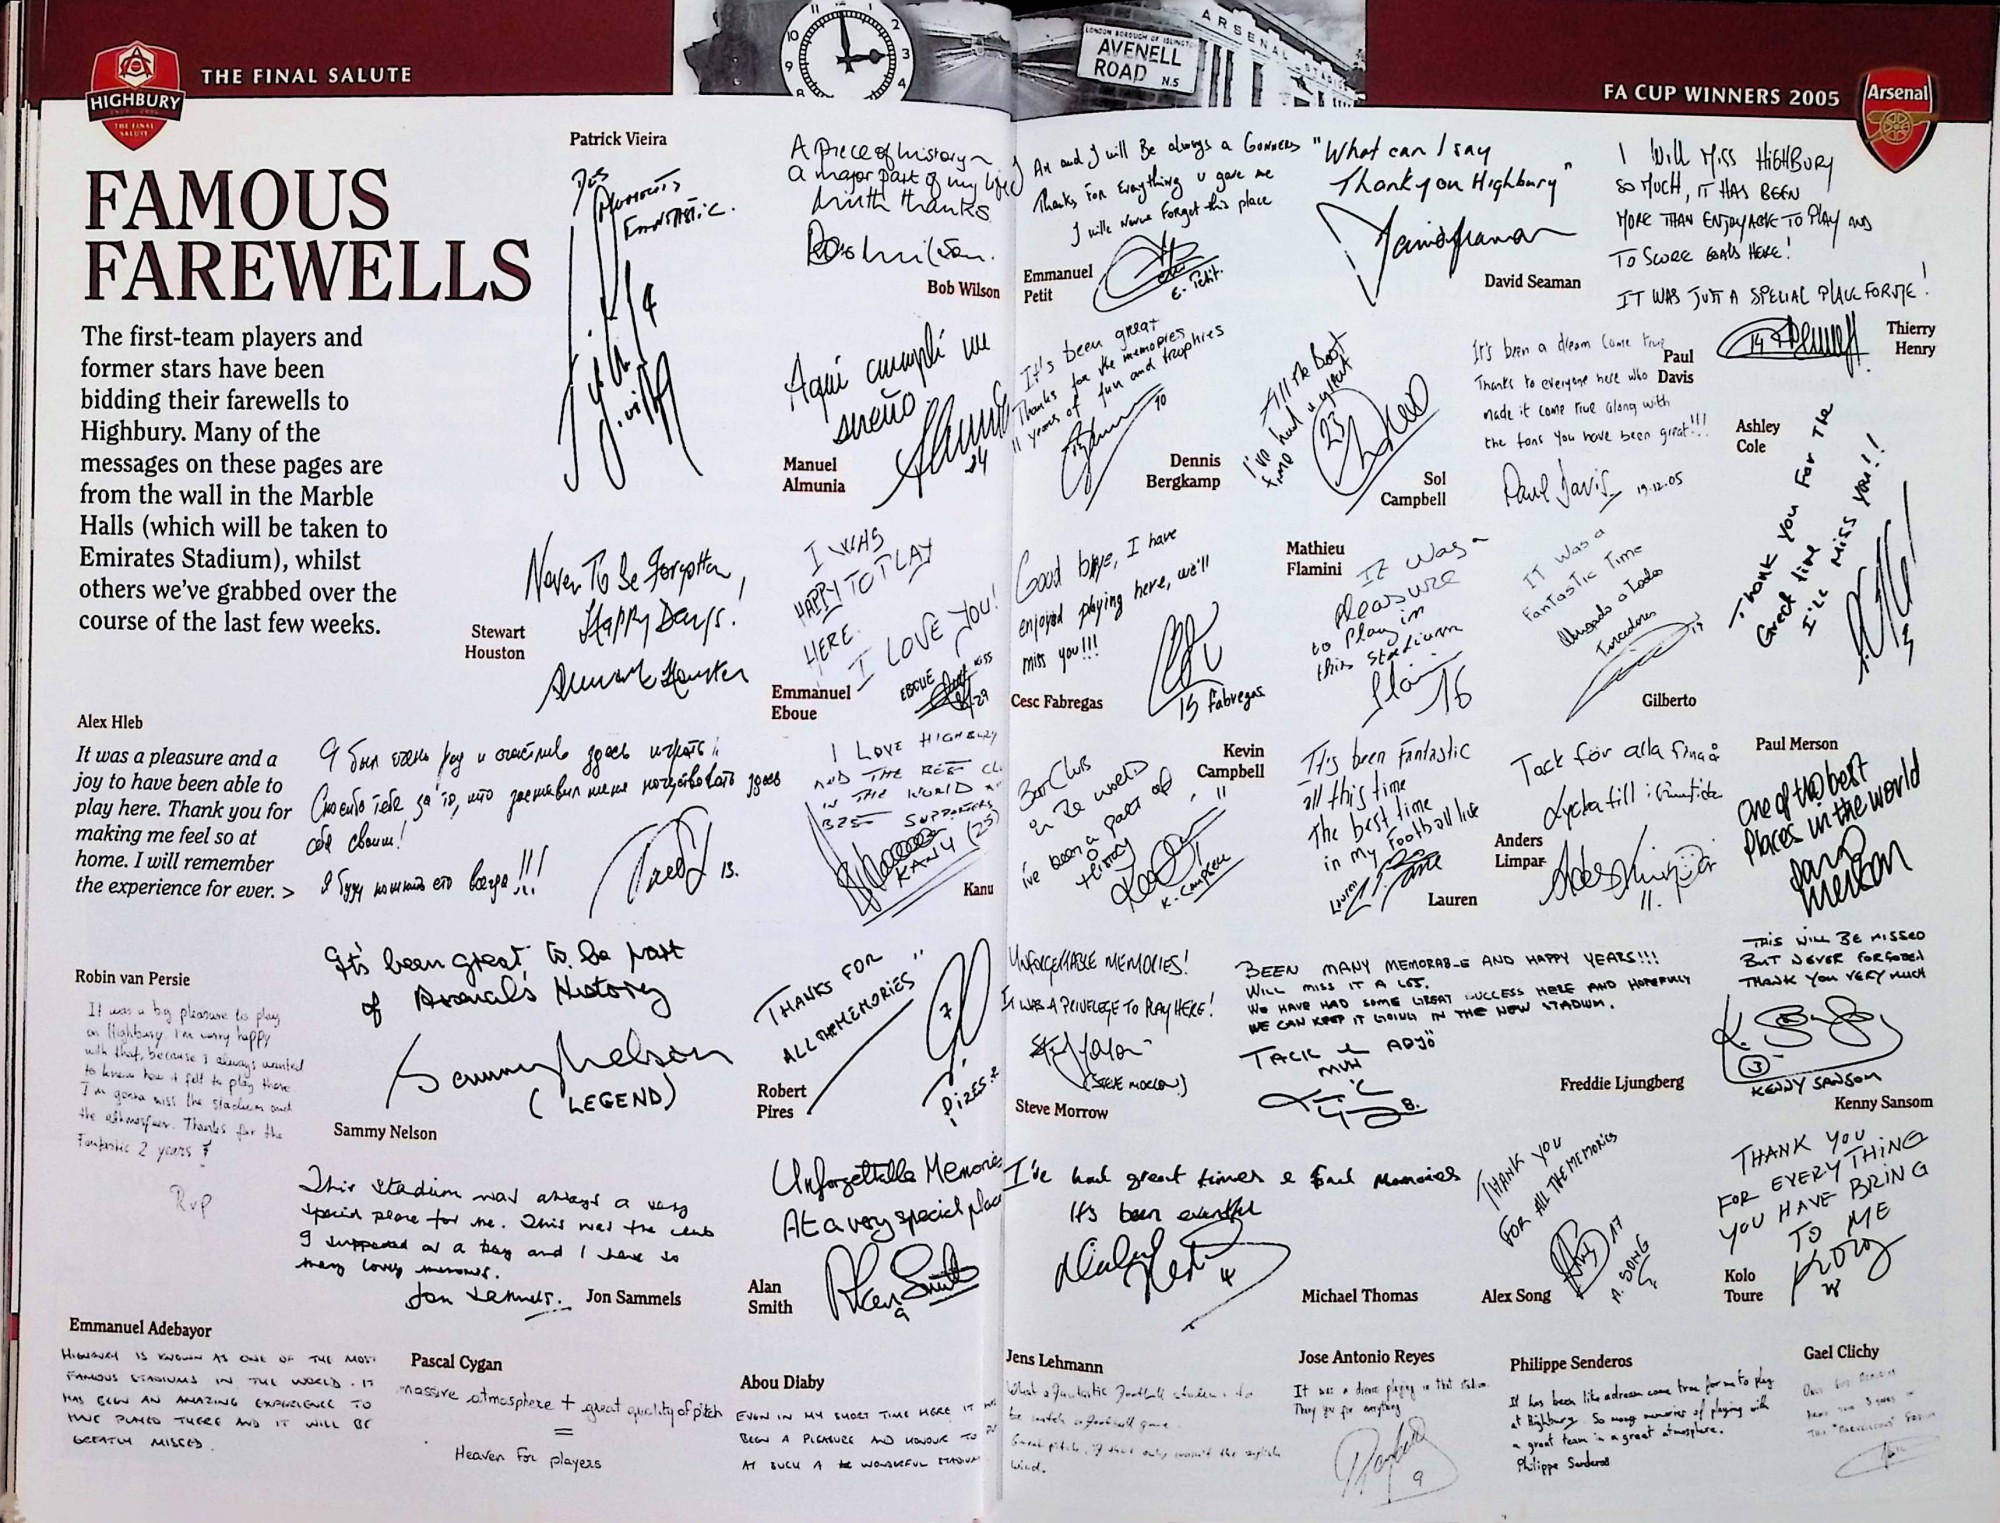 HIGHBURY
THE FINAL
SALUTE
THE FINAL SALUTE
LONDON BOROUGH OF ISLINGTON
AVENELL
ROAD N.5
ARSENAL STADIUM
FA CUP WINNERS 2005
Arsenal
FAMOUS
FAREWELLS
The first-team players and
former stars have been
bidding their farewells to
Highbury. Many of the
messages on these pages are
from the wall in the Marble
Halls (which will be taken to
Emirates Stadium), whilst
others we've grabbed over the
course of the last few weeks.
Patrick Vieira
Des
Moments
Fantastic.
4
A piece of history ~
a major part of my life
with thanks
Bob Wilson.
Bob Wilson
Am and I will Be always a Gonners
Thanks For Everything u gave me
I will Never Forget this place
E. Petit.
Emmanuel
Petit
"What can I say
Thank you Highbury"
David Seaman
I WILL MISS HIGHBURY
SO MUCH, IT HAS BEEN
MORE THAN ENJOYABLE TO PLAY AND
TO SCORE GOALS HERE!
IT WAS JUST A SPECIAL PLACE FOR ME!
14
Thierry
Henry
Aquí cumplí un
sueño.
Almunia
24
Manuel
Almunia
It's been great
Thanks for the memories
11 years of fun and trophies
10
Dennis
Bergkamp
All the Best
I've had a great
time
23
Sol
Campbell
It's been a dream come true
Thanks to everyone here who
made it come true along with
the fans you have been great!!!
Paul Davis 19.12.05
Paul
Davis
Ashley
Cole
Thank you For The
Great time
I'll miss you!!
3
Never To Be Forgotten,
Happy Days!
Stewart Houston
Stewart
Houston
I WAS
HAPPY TO PLAY
HERE.
I LOVE YOU!
EBOUE KISS
27
Emmanuel
Eboue
Good bye, I have
enjoyed playing here, we'll
miss you!!!
15 Fabregas
Cesc Fabregas
Mathieu
Flamini
It was a
pleasure
to play in
this stadium
16
It was a
Fantastic Time
Obrigado a todos
Torcedores
Gilberto
Alex Hleb
It was a pleasure and a
joy to have been able to
play here. Thank you for
making me feel so at
home. I will remember
the experience for ever. >
Я был очень рад и счастлив здесь играть!
Спасибо тебе за то, что заставил меня почувствовать здесь
себя своим!
Я буду помнить это всегда!!!
13.
I LOVE HIGHBURY
AND THE BEST CL
IN THE WORLD
BEST SUPPORTERS
KANU (25)
Kanu
Best Club
in the world
I've been a part of
history
K. CAMPBELL
Kevin
Campbell
It's been Fantastic
all this time
The best time
in my football life
Lauren
Lauren
Tack för alla fina år
Lycka till i framtiden
Anders Limpar
11.
Anders
Limpar
Paul Merson
One of the best
Places in the world
Paul
Merson
Robin van Persie
It was a big pleasure to play
on Highbury. I'm very happy
with that, because I always wanted
to know how it felt to play there
I'm gonna miss the stadium and
the athmosfeer. Thanks for the
Fantastic 2 years!
RvP
It's been great to be part
of Arsenal's History
Sammy Nelson
(LEGEND)
Sammy Nelson
THANKS FOR
ALL THE MEMORIES
7
PIRES.
Robert
Pires
UNFORGETTABLE MEMORIES!
IT WAS A PRIVELEGE TO PLAY HERE!
(STEVE MORROW)
Steve Morrow
BEEN MANY MEMORABLE AND HAPPY YEARS!!!
WILL MISS IT A LOT.
WE HAVE HAD SOME GREAT SUCCESS HERE AND HOPEFULLY
WE CAN KEEP IT GOING IN THE NEW STADIUM.
TACK & ADJÖ
8.
Freddie Ljungberg
THIS WILL BE MISSED
BUT NEVER FORGOTTEN
THANK YOU VERY MUCH
3
KENNY SANSOM
Kenny Sansom
This stadium was always a very
special place for me. This was the club
I supported as a boy and I have so
many lovely memories.
Jon Sammels.
Jon Sammels
Unforgettable Memories
At a very special place
Alan Smith
9
Alan
Smith
I've had great times & great memories
It's been eventful
4
Michael Thomas
THANK YOU
FOR ALL THE MEMORIES
17
A. SONG
Alex Song
THANK YOU
FOR EVERY THING
YOU HAVE BRING
TO ME
KOLO
28
Kolo
Toure
Emmanuel Adebayor
HIGHBURY IS KNOWN AS ONE OF THE MOST
FAMOUS STADIUMS IN THE WORLD. IT
HAS BEEN AN AMAZING EXPERIENCE TO
HAVE PLAYED THERE AND IT WILL BE
GREATLY MISSED.
Pascal Cygan
massive atmosphere + great quality of pitch
=
Heaven for players
Abou Diaby
EVEN IN MY SHORT TIME HERE IT HAS
BEEN A PLEASURE AND HONOUR TO
AT SUCH A WONDERFUL STADIUM
Jens Lehmann
What a fantastic football stadium to
be watch a football game.
Great pitch, if that only wasn't the english
wind.
Jose Antonio Reyes
It was a dream playing in that stadium.
Thank you for everything
9
Philippe Senderos
It has been like a dream come true for me to play
at Highbury. So many memories of playing with
a great team in a great atmosphere.
Philippe Senderos
Gael Clichy